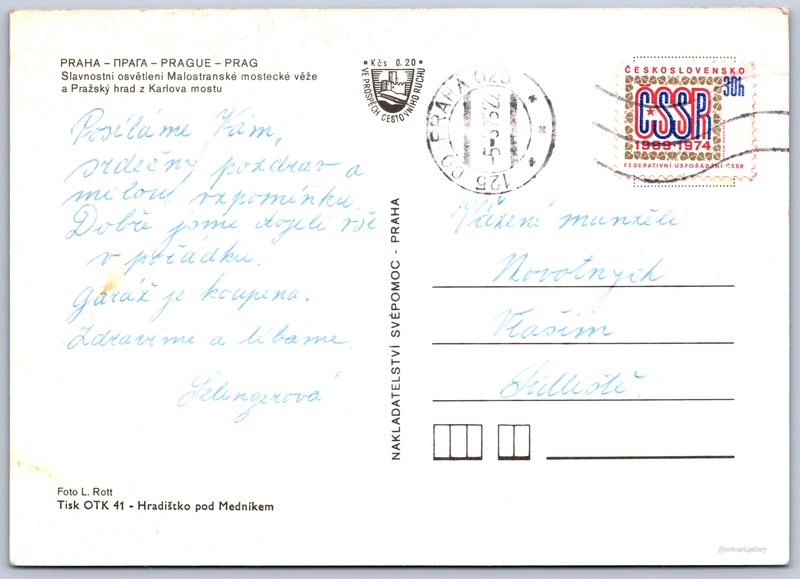 PRAHA – ПРАГА – PRAGUE – PRAG
Slavnostní osvětlení Malostranské mostecké věže
a Pražský hrad z Karlova mostu
Kčs 0.20
VE PROSPĚCH CESTOVNÍHO RUCHU
PRAHA 025
125 00
ČESKOSLOVENSKO
30h
ČSSR
1969-1974
FEDERATIVNÍ USPOŘÁDÁNÍ ČSSR
Posíláme Vám,
srdečný pozdrav a
milou vzpomínku.
Dobře jsme dojeli vše
v pořádku.
Garáž je koupena.
Zdravíme a líbáme.
Selingerová
NAKLADATELSTVÍ SVÉPOMOC - PRAHA
Vážení manželé
Novotných
Vlašim
Sídliště.
Foto L. Rott
Tisk OTK 41 - Hradištko pod Medníkem
@postcard.gallery